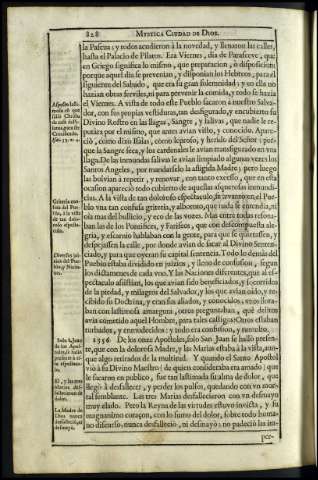 828 MYSTICA CIUDAD DE DIOS.
la Pascua; y todos acudieron à la novedad, y llenaron las calles,
hasta el Palacio de Pilatos. Era Viernes, dia de Parasceve, que
en Griego significa lo mismo, que preparacion, ò disposicion;
porque aquel dia se prevenian, y disponian los Hebreos, para el
siguiente del Sabado, que era su gran solemnidad; y en ella no
hazian obras serviles, ni para prevenir la comida, y todo se hazia
el Viernes. A vista de todo este Pueblo sacaron à nuestro Salva-
dor, con sus propias vestiduras, tan desfigurado, y encubierto su
Divino Rostro en las llagas, Sangre, y salivas, que nadie le re-
putàra por el mismo, que antes avian visto, y conocido. Apare-
ciò, como dixo Isaias, como leproso, y herido del Señor: por-
que la Sangre seca, y los cardenales le avian transfigurado en vna
llaga. De las inmundas salivas le avian limpiado algunas vezes los
Santos Angeles, por mandarselo la afligida Madre; pero luego
las bolvian à repetir, y renovar, con tanto excesso, que en esta
ocasion apareciò todo cubierto de aquellas asquerosas inmundi-
cias. A la vista de tan doloroso espectaculo, se levantò en el Pue-
blo vna tan confusa griteria, y alboroto, que nada se entendia, ni
oìa mas del bullicio, y eco de las vozes. Mas entre todas resona-
ban las de los Pontifices, y Fariseos, que con descompuesta ale-
gria, y escarnio hablaban con la gente, para que se quietassen, y
despejassen la calle, por donde avian de sacar al Divino Senten-
ciado, y para que oyessen su capital sentencia. Todo lo demàs del
Pueblo estaba dividido en juizios, y lleno de confusion, segun
los dictamenes de cada vno. Y las Naciones diferentes, que al es-
pectaculo assistian, los que avian sido beneficiados, y socorridos
de la piedad, y milagros del Salvador, y los que avian oìdo, y re-
cibido su Doctrina, y eran sus aliados, y conocidos; vnos llora-
ban con lastimosa amargura, otros preguntaban, què delitos
avia cometido aquel Hombre, para tales castigos? Otros estaban
turbados, y enmudecidos; y todo era confusion, y tumulto.
1356 De los onze Apostoles, solo San Juan se hallò presen-
te, que con la dolorosa Madre, y las Marias estaba à la vista, aun-
que algo retirados de la multitud. Y quando el Santo Apostol
viò à su Divino Maestro (de quien consideraba era amado) que
le sacaron en publico, fue tan lastimada su alma de dolor, que
llegò à desfallecer, y perder los pulsos, quedando con vn mor-
tal semblante. Las tres Marias desfallecieron con vn desmayo
muy elado. Pero la Reyna de las virtudes estuvo invicta, y su
magnanimo coraçon, con lo sumo del dolor, sobre todo huma-
no discurso, nunca desfalleciò, ni desmayò: no padeciò las im-
per-